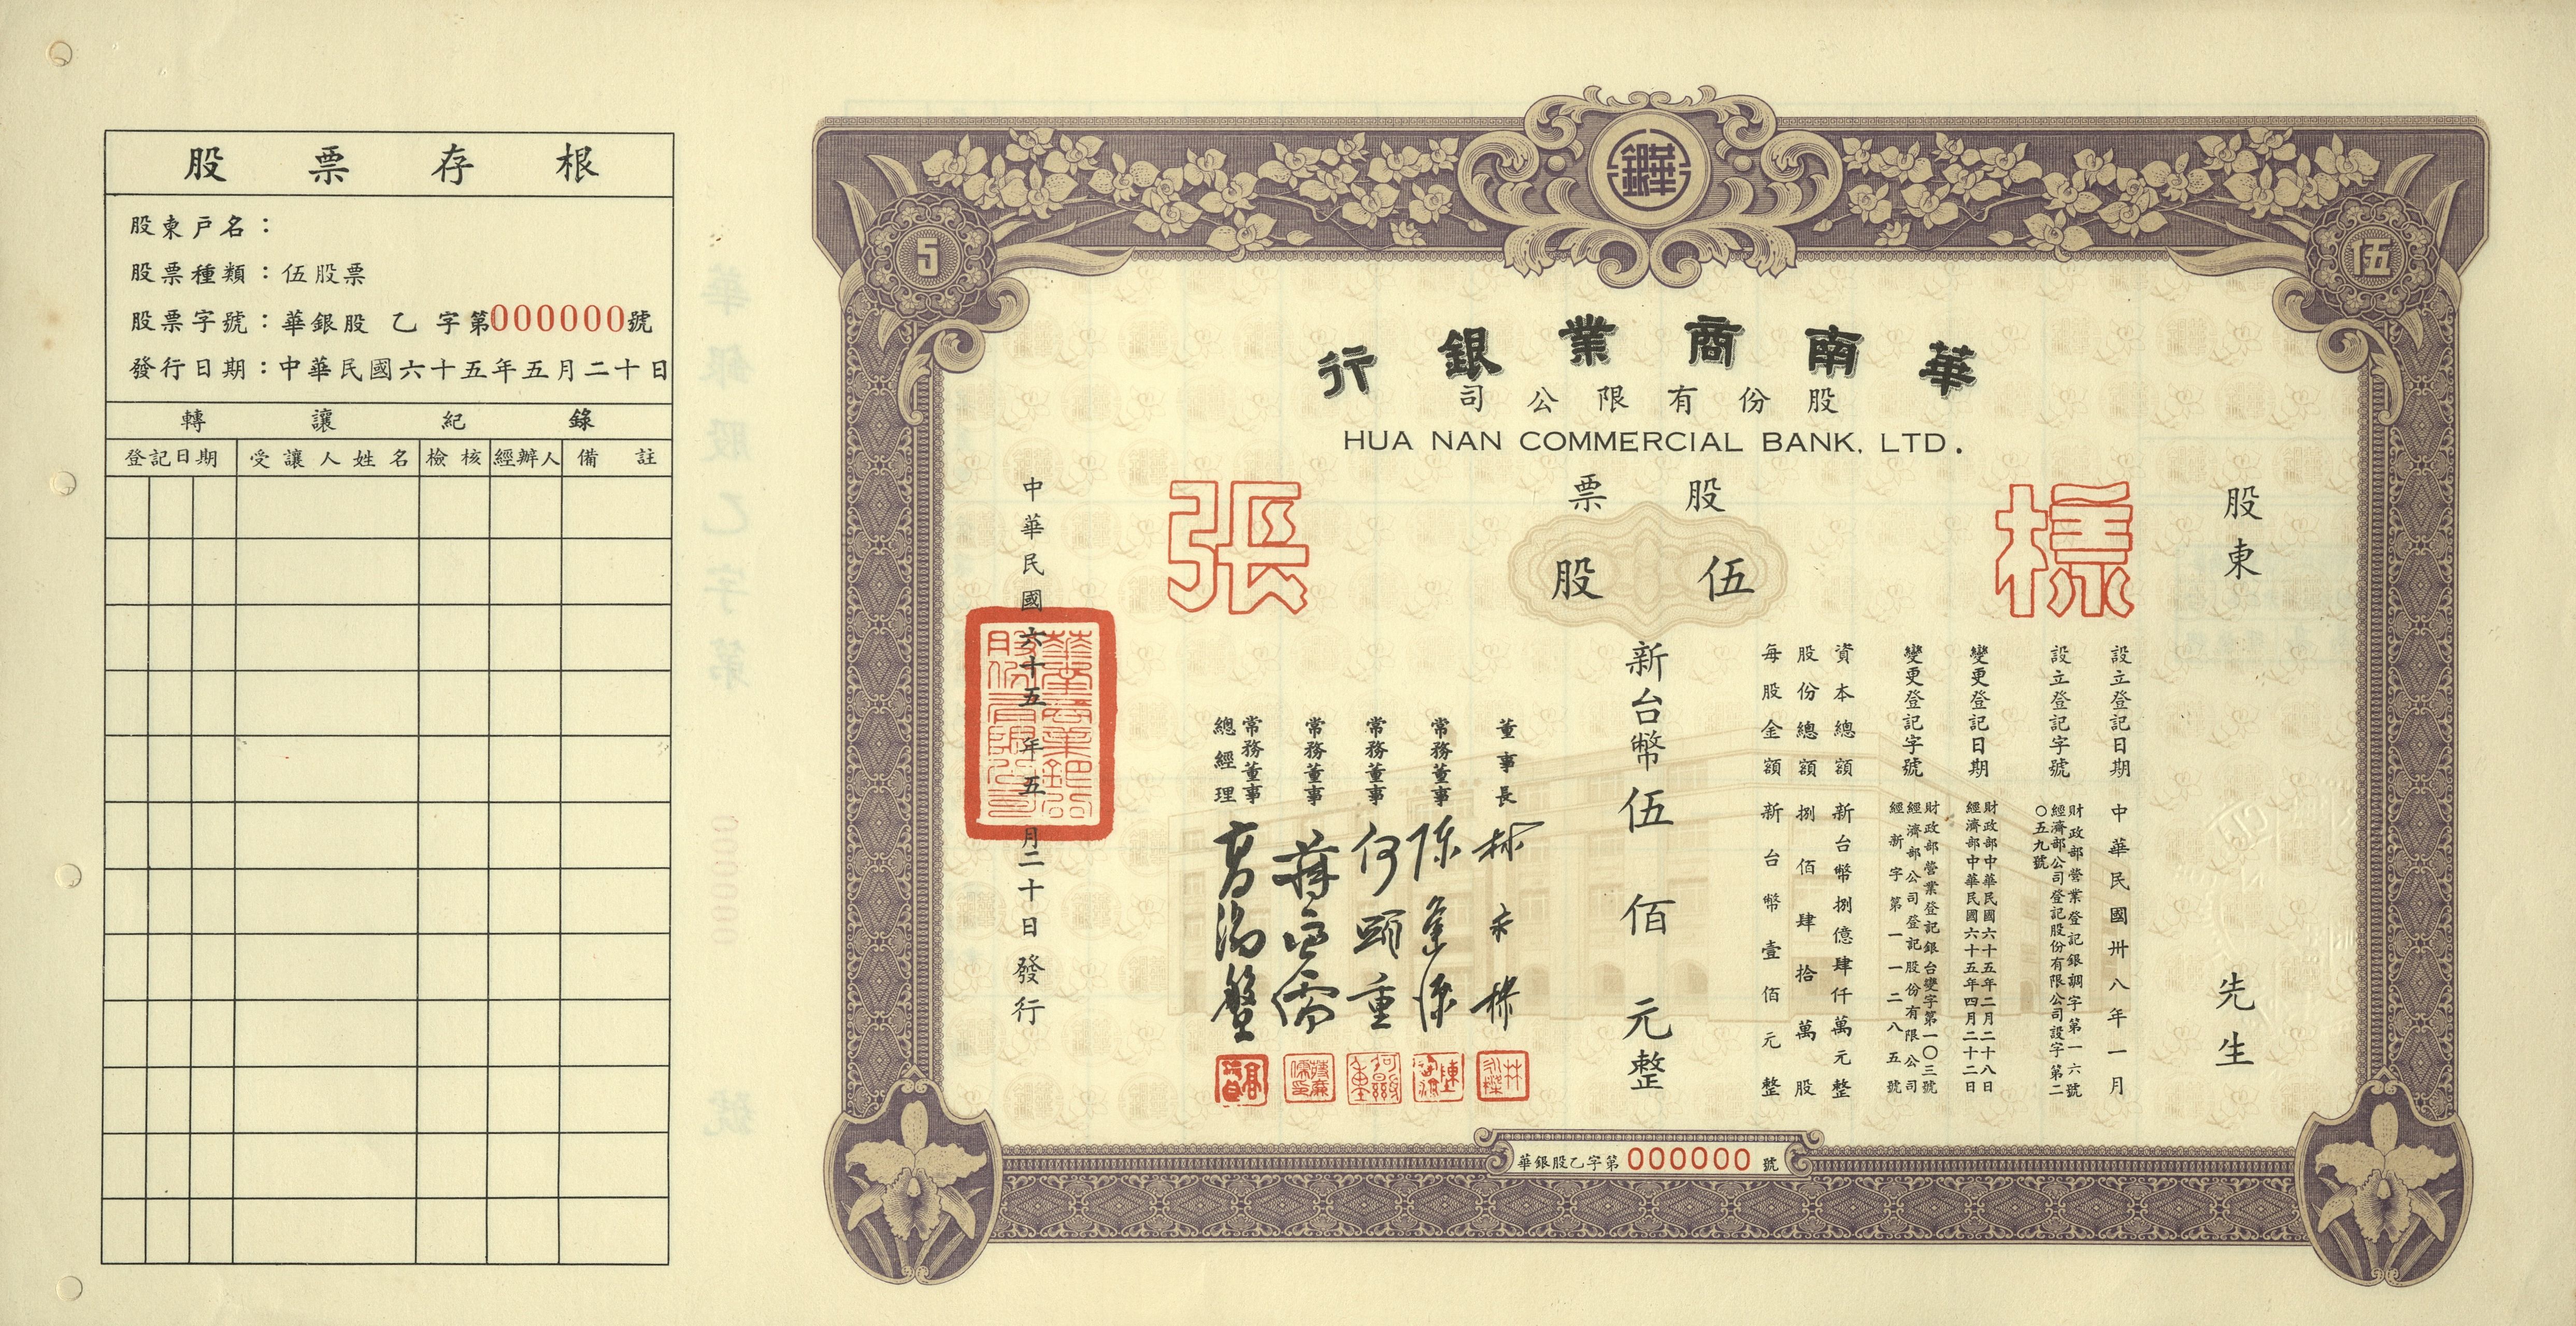 股票存根
股東戶名：
股票種類：伍股票
股票字號：華銀股 乙 字第000000號
發行日期：中華民國六十五年五月二十日
轉讓紀錄
登記日期 受讓人姓名 檢核 經辦人 備註
華銀
5
伍
華南商業銀行
股份有限公司
HUA NAN COMMERCIAL BANK, LTD.
股票
伍股
樣張
股東 先生
設立登記日期 中華民國卅八年一月
設立登記字號 財政部營業登記銀調字第一六號
經濟部公司登記股份有限公司設字第二〇五九號
變更登記日期 財政部中華民國六十五年二月二十八日
經濟部中華民國六十五年四月二十二日
變更登記字號 財政部營業登記銀台變字第一〇三號
經濟部公司登記股份有限公司
經新字第一一二八五號
資本總額 新台幣捌億肆仟萬元整
股份總額 捌佰肆拾萬股
每股金額 新台幣壹佰元整
新台幣伍佰元整
董事長
常務董事
常務董事
常務董事
常務董事
總經理
中華民國六十五年五月二十日發行
華銀股乙字第000000號
華銀股乙字第 000000 號